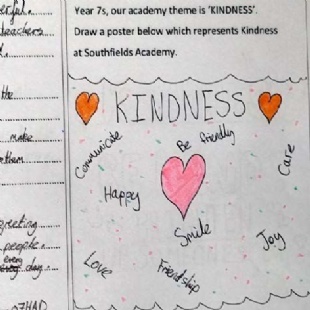 Year 7s, our academy theme is 'KINDNESS'.
Draw a poster below which represents Kindness
at Southfields Academy.
KINDNESS
Communicate
Be friendly
Care
Happy
Smile
Joy
Love
Friendship
the
make
them
greeting
people.
every day.